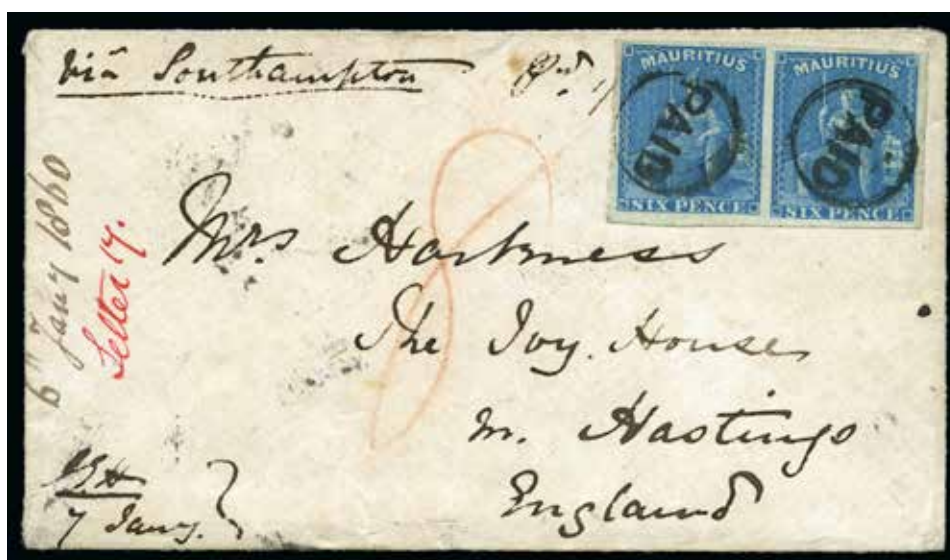 Via Southampton
Pd.
MAURITIUS
PAID
SIX PENCE
MAURITIUS
PAID
SIX PENCE
6th Jany 1860
Letter 17.
8
Mrs Harkness
The Ivy House
nr. Hastings
England
7 Jany.